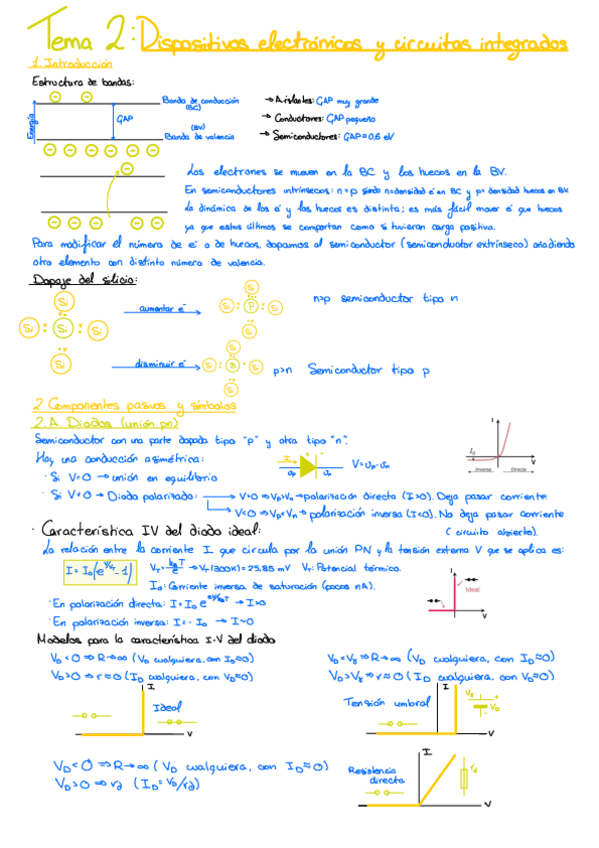 Tema 2: Dispositivos electrónicos y circuitos integrados
1. Introducción
Estructura de bandas:
Energía
GAP
Banda de conducción
(BC)
(BV)
Banda de valencia
→ Aislantes: GAP muy grande
→ Conductores: GAP pequeño
→ Semiconductores: GAP≈0,6 eV
Los electrones se mueven en la BC y los huecos en la BV.
En semiconductores intrínsecos: n=p siendo n=densidad e⁻ en BC y p= densidad huecos en BV
La dinámica de los e⁻ y los huecos es distinta; es más fácil mover e⁻ que huecos
ya que estos últimos se comportan como si tuvieran carga positiva.
Para modificar el número de e⁻ o de huecos, dopamos al semiconductor (semiconductor extrínseco) añadiendo
otro elemento con distinto número de valencia.
Dopaje del silicio:
Si
Si : Si : Si
Si
aumentar e⁻
Si
Si : P : Si
Si
n>p semiconductor tipo n
disminuir e⁻
Si : B : Si
Si
p>n Semiconductor tipo p
2. Componentes pasivos y símbolos
2.A. Diodos (unión pn)
Semiconductor con una parte dopada tipo "p" y otra tipo "n".
Hay una conducción asimétrica:
· Si V=0 → unión en equilibrio
· Si V≠0 → Diodo polarizado:
I
V=Up-Un
Up Un
I
Id
V
Inversa Directa
V>0 ⇒ Vp>Vn → polarización directa (I>0). Deja pasar corriente
V<0 ⇒ Vp<Vn → polarización inversa (I<0). No deja pasar corriente
(circuito abierto).
· Característica IV del diodo ideal:
La relación entre la corriente I que circula por la unión PN y la tensión externa V que se aplica es:
I = I₀(e^(V/VT) - 1)
VT = kBT/e → VT(300K) = 25,85 mV VT: Potencial térmico.
I₀: Corriente inversa de saturación (pocos nA).
· En polarización directa: I = I₀ e^(eV/kBT) → I>0
· En polarización inversa: I = - I₀ → I~0
I
Ideal
V
Modelos para la característica I-V del diodo
VD<0 ⇒ R→∞ (VD cualquiera, con ID≈0)
VD>0 ⇒ r≈0 (ID cualquiera, con VD≈0)
I
Ideal
V
VD<Vγ ⇒ R→∞ (VD cualquiera, con ID≈0)
VD>Vγ ⇒ r≈0 (ID cualquiera, con VD≈0)
Tensión umbral
I
V
Vγ + - VD
VD<0 ⇒ R→∞ (VD cualquiera, con ID≈0)
VD>0 ⇒ rd (ID = VD/rd)
Resistencia
directa
I
V
rd